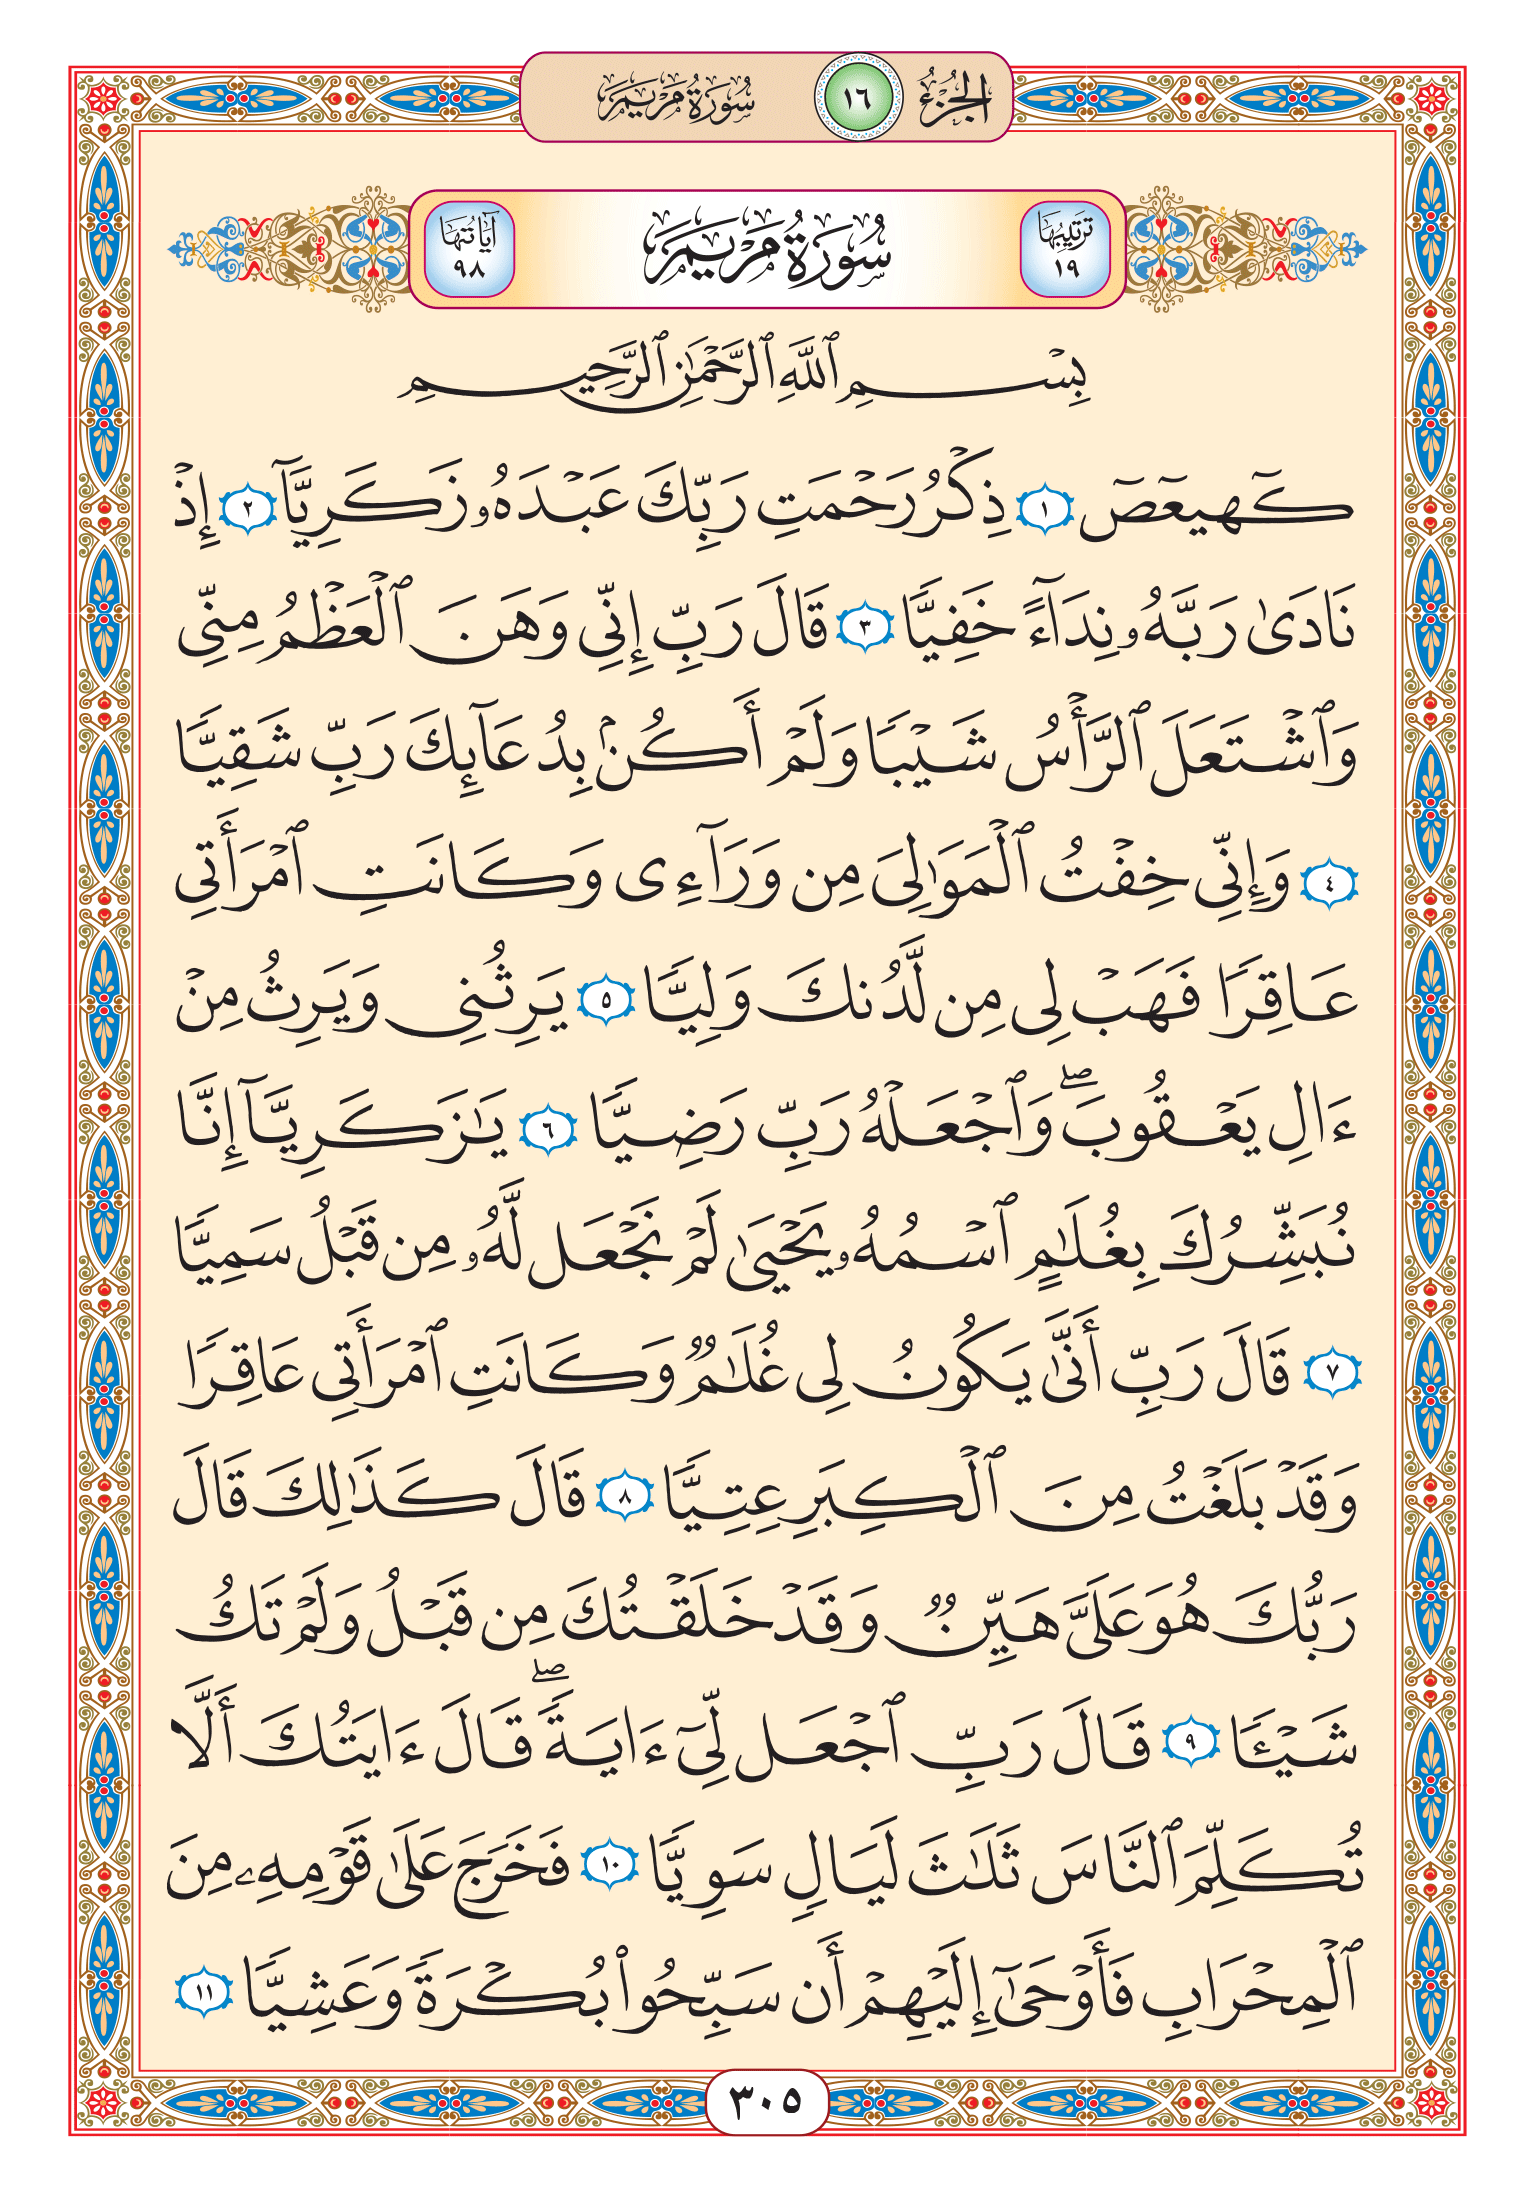 الجُزْءُ ١٦ سُورَةُ مَرْيَمَ
تَرْتِيبُهَا ١٩ سُورَةُ مَرْيَمَ آيَاتُهَا ٩٨
بِسْمِ ٱللَّهِ ٱلرَّحْمَٰنِ ٱلرَّحِيمِ
كٓهيعٓصٓ ١ ذِكْرُ رَحْمَتِ رَبِّكَ عَبْدَهُۥ زَكَرِيَّآ ٢ إِذْ
نَادَىٰ رَبَّهُۥ نِدَآءً خَفِيًّا ٣ قَالَ رَبِّ إِنِّى وَهَنَ ٱلْعَظْمُ مِنِّى
وَٱشْتَعَلَ ٱلرَّأْسُ شَيْبًا وَلَمْ أَكُنۢ بِدُعَآئِكَ رَبِّ شَقِيًّا
٤ وَإِنِّى خِفْتُ ٱلْمَوَٰلِىَ مِن وَرَآءِى وَكَانَتِ ٱمْرَأَتِى
عَاقِرًا فَهَبْ لِى مِن لَّدُنكَ وَلِيًّا ٥ يَرِثُنِى وَيَرِثُ مِنْ
ءَالِ يَعْقُوبَ ۖ وَٱجْعَلْهُ رَبِّ رَضِيًّا ٦ يَٰزَكَرِيَّآ إِنَّا
نُبَشِّرُكَ بِغُلَٰمٍ ٱسْمُهُۥ يَحْيَىٰ لَمْ نَجْعَل لَّهُۥ مِن قَبْلُ سَمِيًّا
٧ قَالَ رَبِّ أَنَّىٰ يَكُونُ لِى غُلَٰمٌ وَكَانَتِ ٱمْرَأَتِى عَاقِرًا
وَقَدْ بَلَغْتُ مِنَ ٱلْكِبَرِ عِتِيًّا ٨ قَالَ كَذَٰلِكَ قَالَ
رَبُّكَ هُوَ عَلَىَّ هَيِّنٌ وَقَدْ خَلَقْتُكَ مِن قَبْلُ وَلَمْ تَكُ
شَيْـًٔا ٩ قَالَ رَبِّ ٱجْعَل لِّىٓ ءَايَةً ۖ قَالَ ءَايَتُكَ أَلَّا
تُكَلِّمَ ٱلنَّاسَ ثَلَٰثَ لَيَالٍ سَوِيًّا ١٠ فَخَرَجَ عَلَىٰ قَوْمِهِۦ مِنَ
ٱلْمِحْرَابِ فَأَوْحَىٰٓ إِلَيْهِمْ أَن سَبِّحُوا۟ بُكْرَةً وَعَشِيًّا ١١
٣٠٥